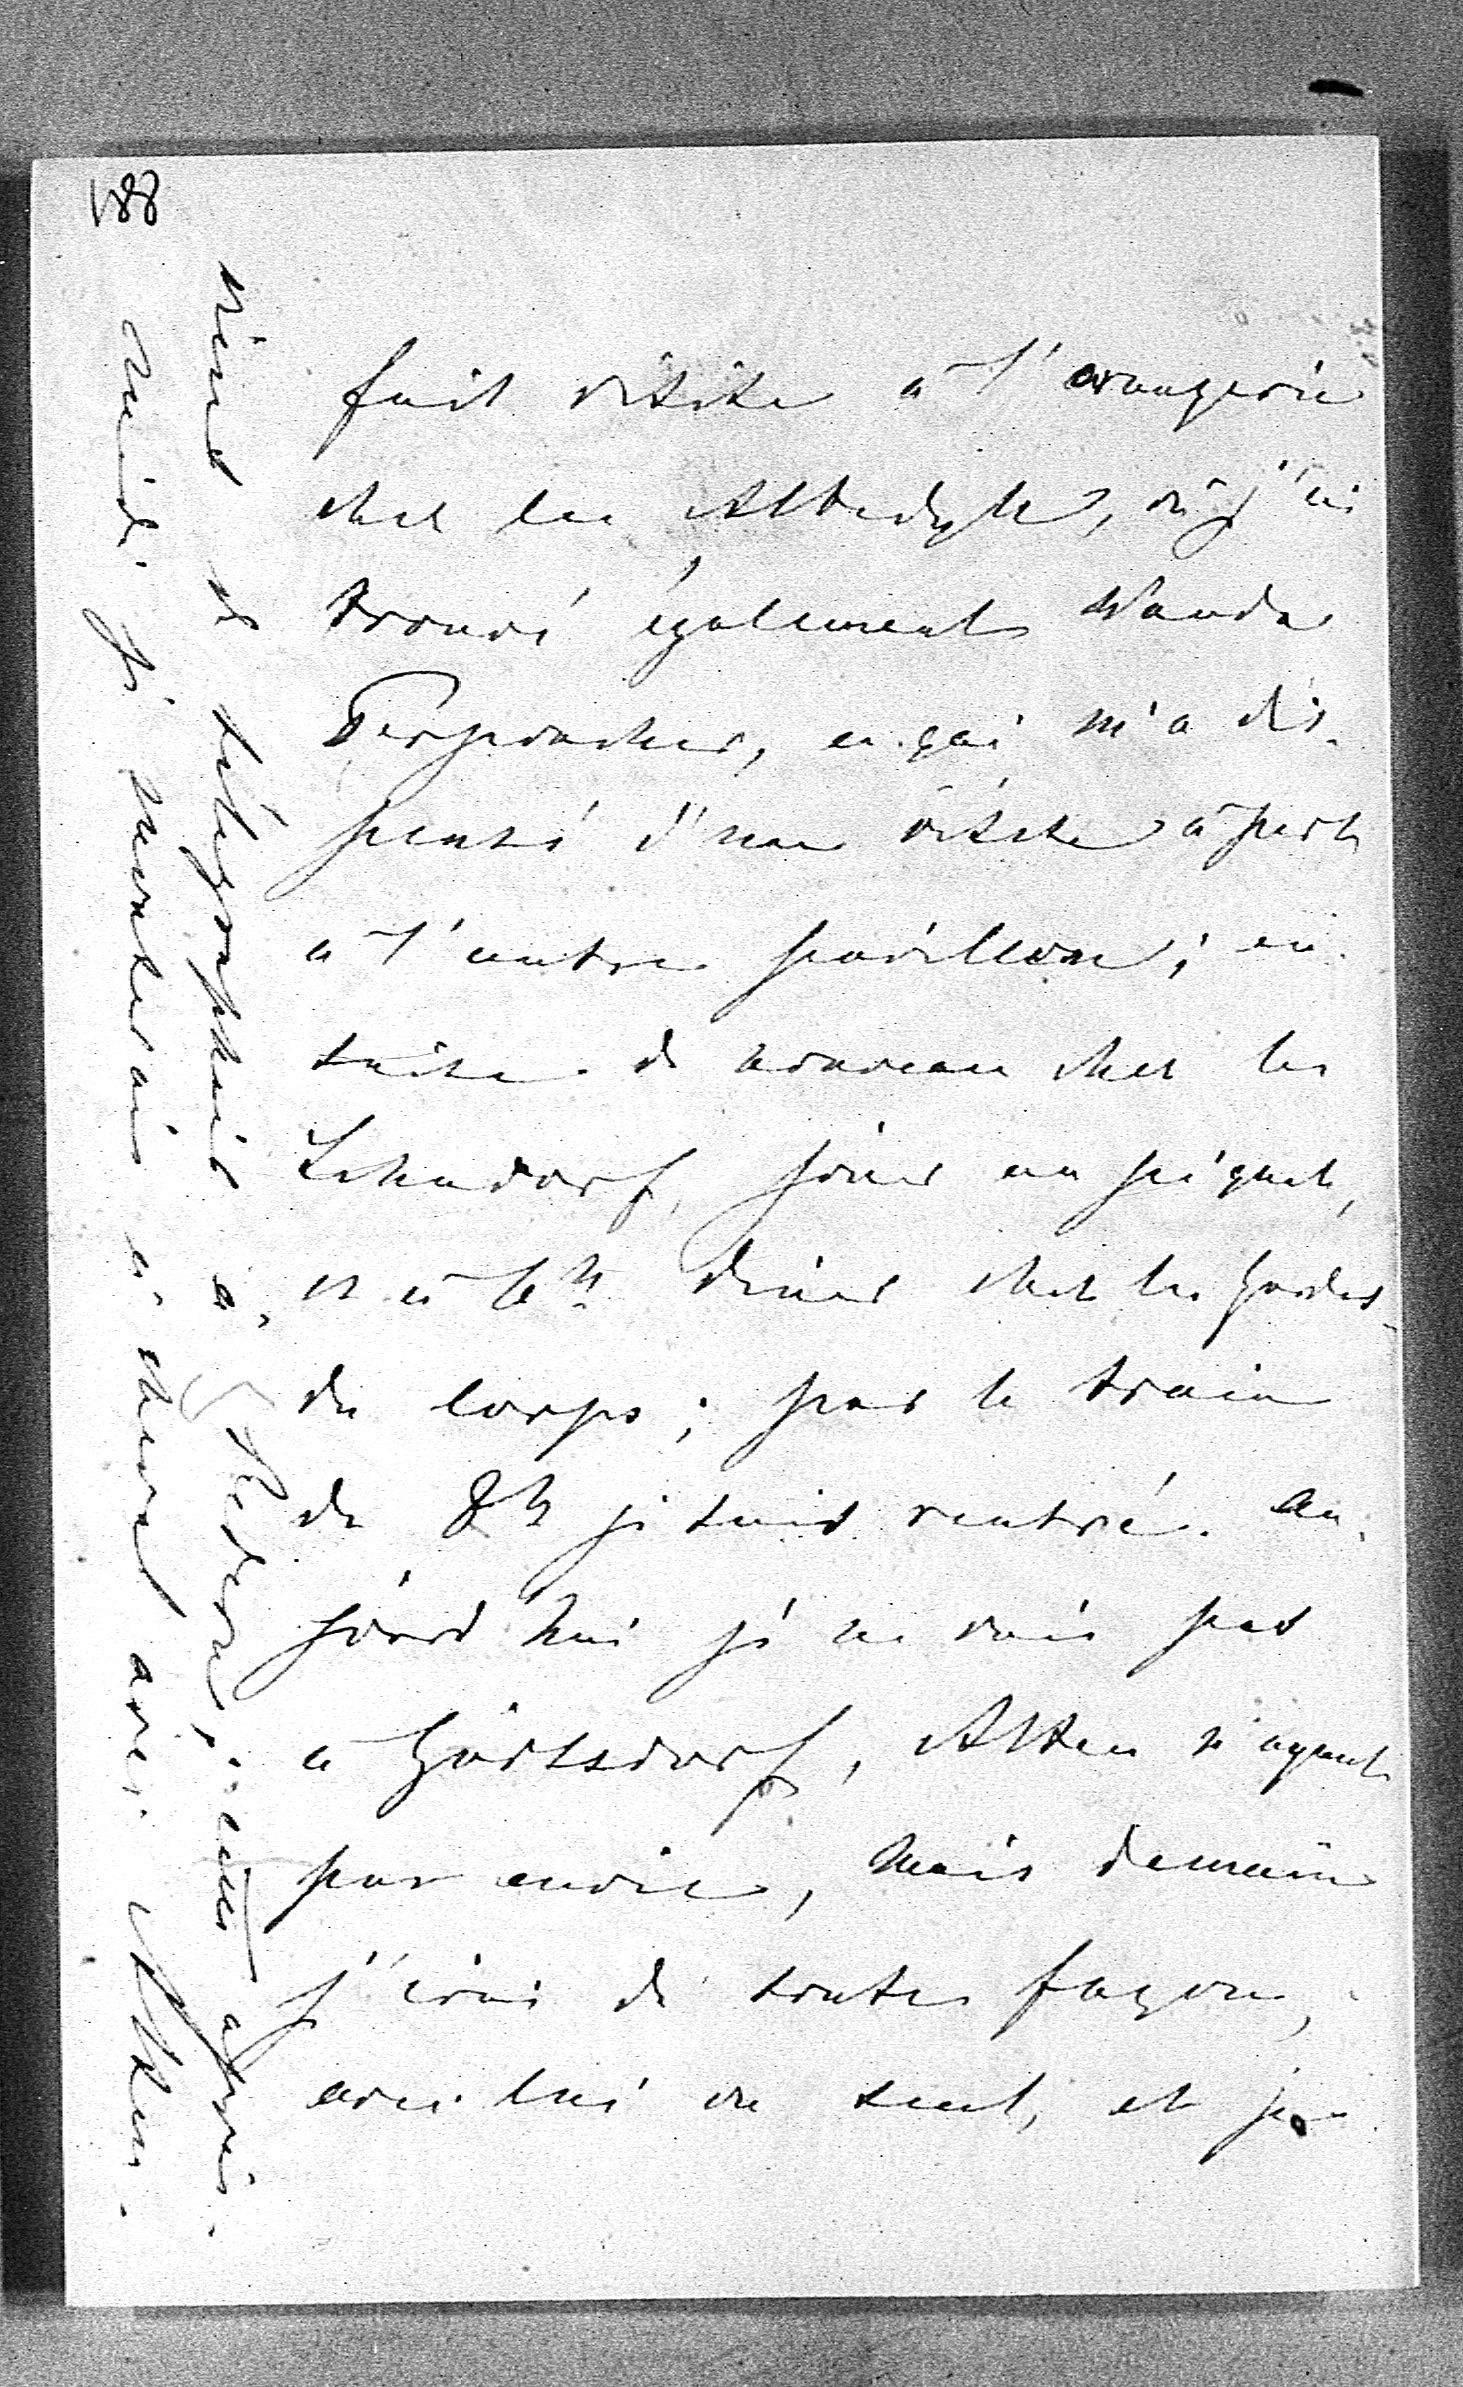 188
fait visite à l'orangerie
chez les Albedyll, où j'ai
trouvé également Wanda
Perponcher, ce qui m'a dis-
pensé d'une visite à part
à l'autre pavillon; en-
suite de nouveau chez les
Lehndorf, jouer un piquet,
et à 6h diner chez les Gardes-
du Corps; par le train
de 8h je suis rentré. Au-
jourd'hui je ne vais pas
à Görlsdorf, Alten n'ayant
pas envie, mais demain
j'irai de toute façon,
avec lui ou seul, et je
viens de télégraphier à
cette après-
midi je monterai à cheval avec Alten.